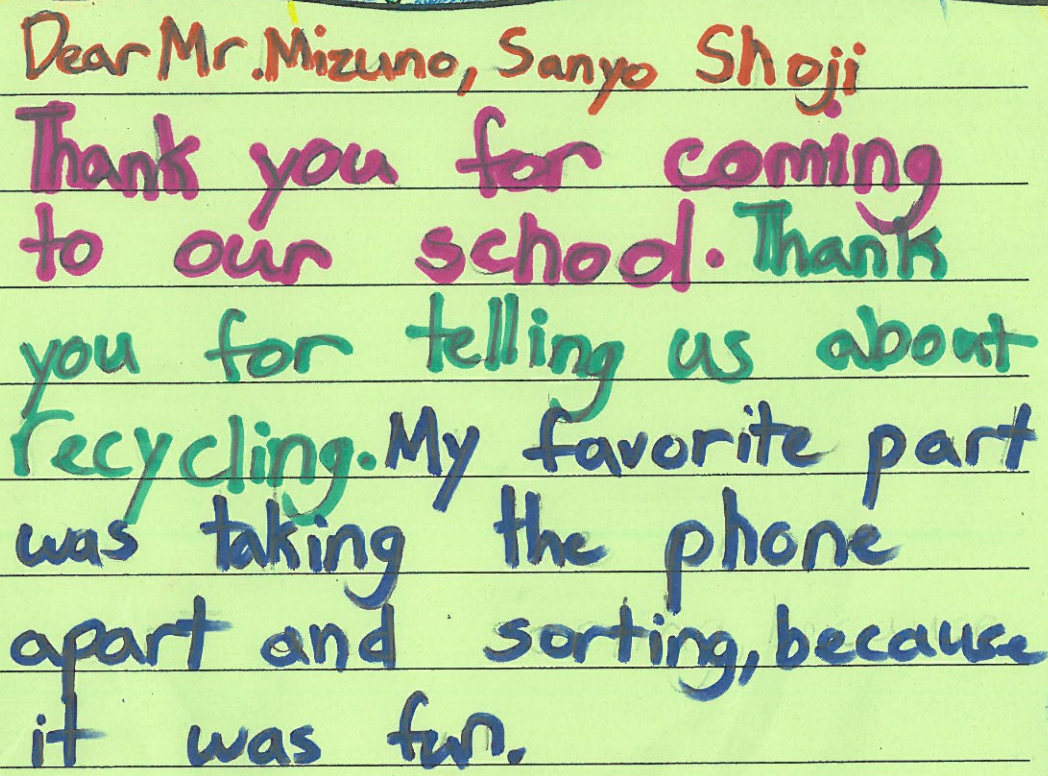 Dear Mr. Mizuno, Sanyo Shoji
Thank you for coming
to our school. Thank
you for telling us about
recycling. My favorite part
was taking the phone
apart and sorting, because
it was fun.